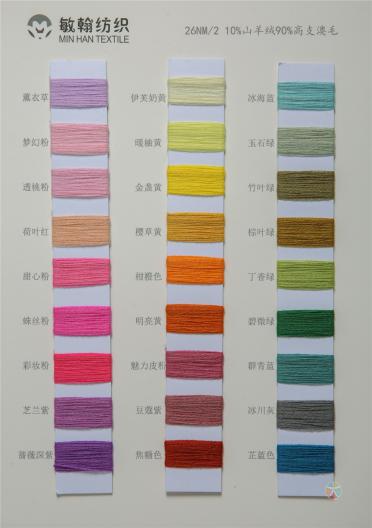 敏翰纺织
MIN HAN TEXTILE
26NM/2 10%山羊绒90%高支澳毛
薰衣草
梦幻粉
透桃粉
荷叶红
甜心粉
蛛丝粉
彩妆粉
芝兰紫
蔷薇深紫
伊芙奶黄
暖柚黄
金盏黄
樱草黄
甜橙色
明亮黄
魅力皮粉
豆蔻紫
焦糖色
冰海蓝
玉石绿
竹叶绿
棕叶绿
丁香绿
碧微绿
群青蓝
冰川灰
芷蓝色